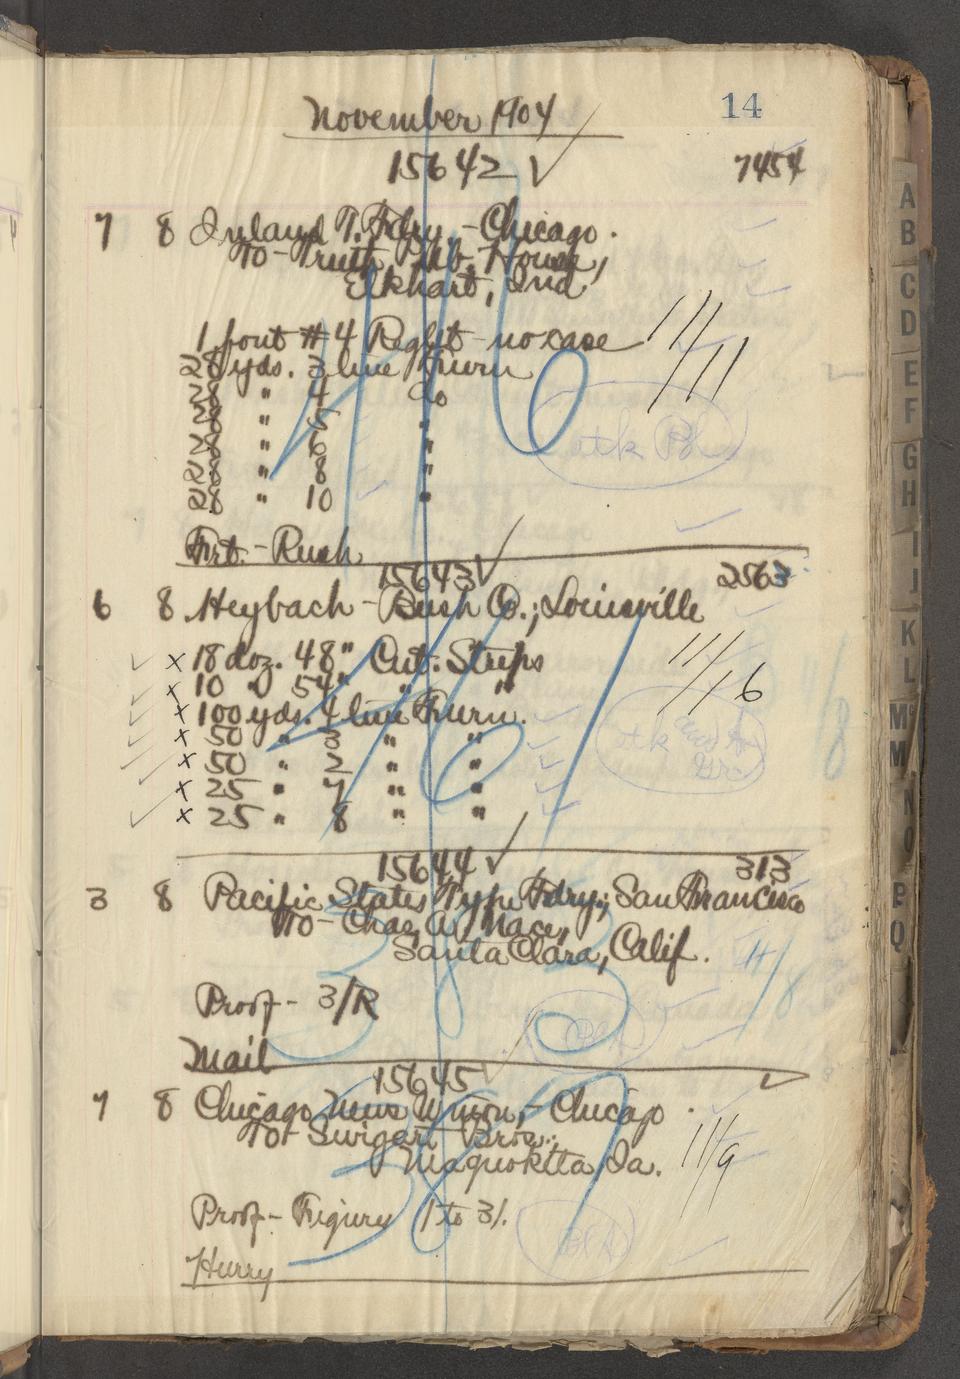 14
November 1904
15642 ✓ 7454
7 8 Inland T. Fdry. - Chicago.
To - Truth Pub. House,
Elkhart, Ind.
1 font #4 Reglt - no case 11/11
28 yds. 3 line Furn
28 " 4 do
28 " 5 "
28 " 6 "
28 " 8 "
28 " 10 "
416
stk
Frt. - Rush
15643 ✓ 2563
6 8 Heybach - Bush Co.; Louisville
✓ x 18 doz. 48" Cut. Strips 11/16
✓ x 10 " 54" " "
✓ x 100 yds. 4 line Furn.
✓ x 50 " 3 " "
✓ x 50 " 2 " "
✓ x 25 " 7 " "
✓ x 25 " 8 " "
stk
15644 ✓ 313
3 8 Pacific States Type Fdry.; San Francisco
To - Chas. A. Nace,
Santa Clara, Calif.
11/8
Proof - 3/R
383
Mail
15645 ✓
7 8 Chicago News Union, - Chicago.
To - Swigart Bros.;
Maquoketa, Ia. 11/9
387
Proof - Figury 1 to 3/.
Hurry
A
B
C
D
E
F
G
H
I
J
K
L
Mc
M
N
O
P
Q